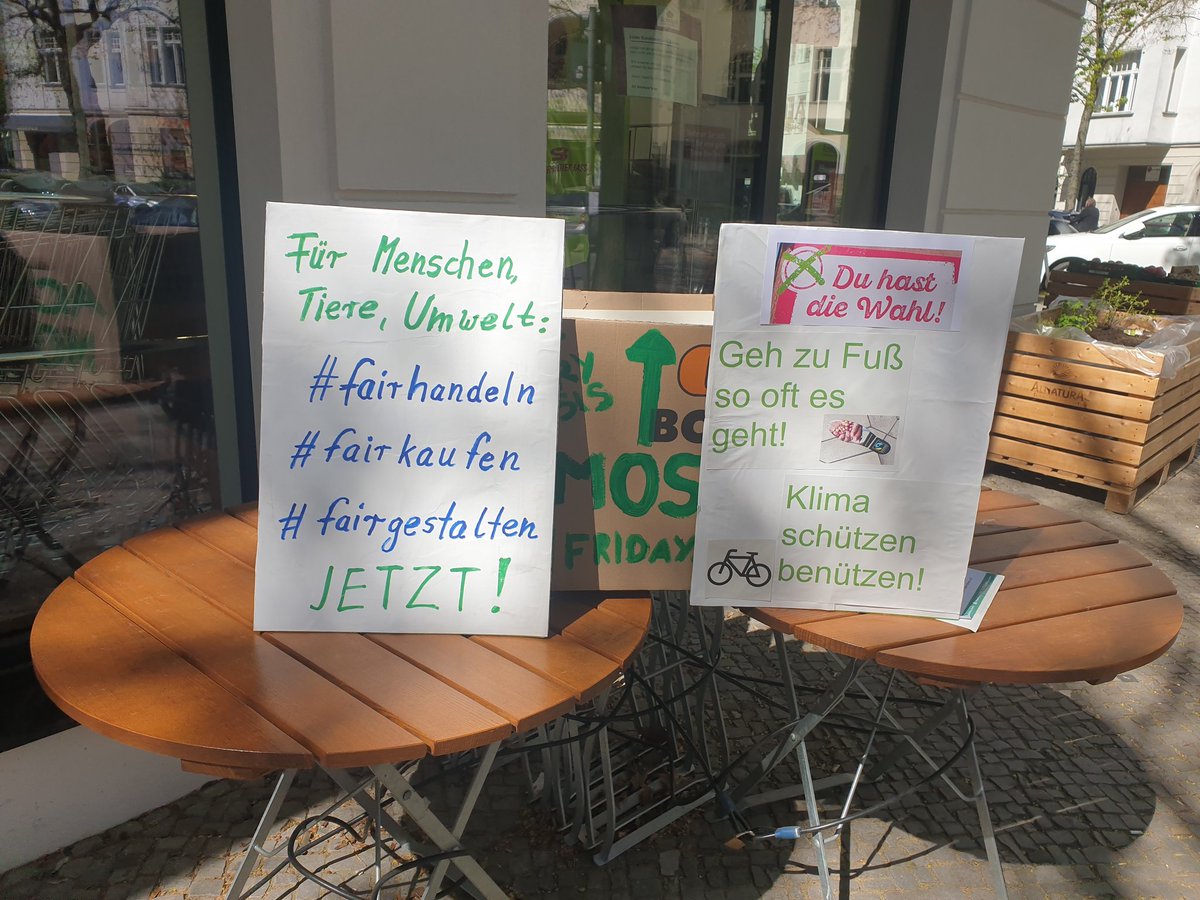 Für Menschen,
Tiere, Umwelt:
#fairhandeln
#fairkaufen
#fairgestalten
JETZT!
BO
MOS
FRIDAY
Du hast
die Wahl!
Geh zu Fuß
so oft es
geht!
Klima
schützen
benützen!
ALNATURA